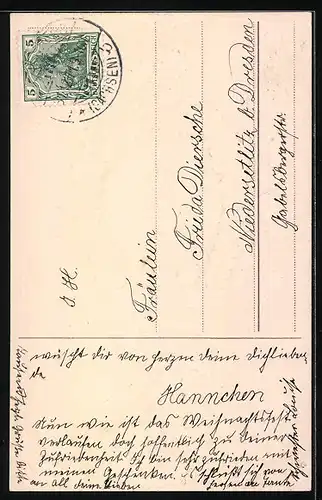 5 5
(SACHSEN)
S. H.
Fräulein
Frieda Diersche
Niedersedlitz b Dresden
Gabelsbergerstr.
wüscht dir von herzen deine dichliebende
Hannchen
Nun wie ist das Weihnachtsfest
verlaufen doch hoffentlich zu deiner
Zufriedenheit ich bin sehr zufrieden mit
meinen Geschenken. Schließt sich von
herzen an Tante
an all deine lieben